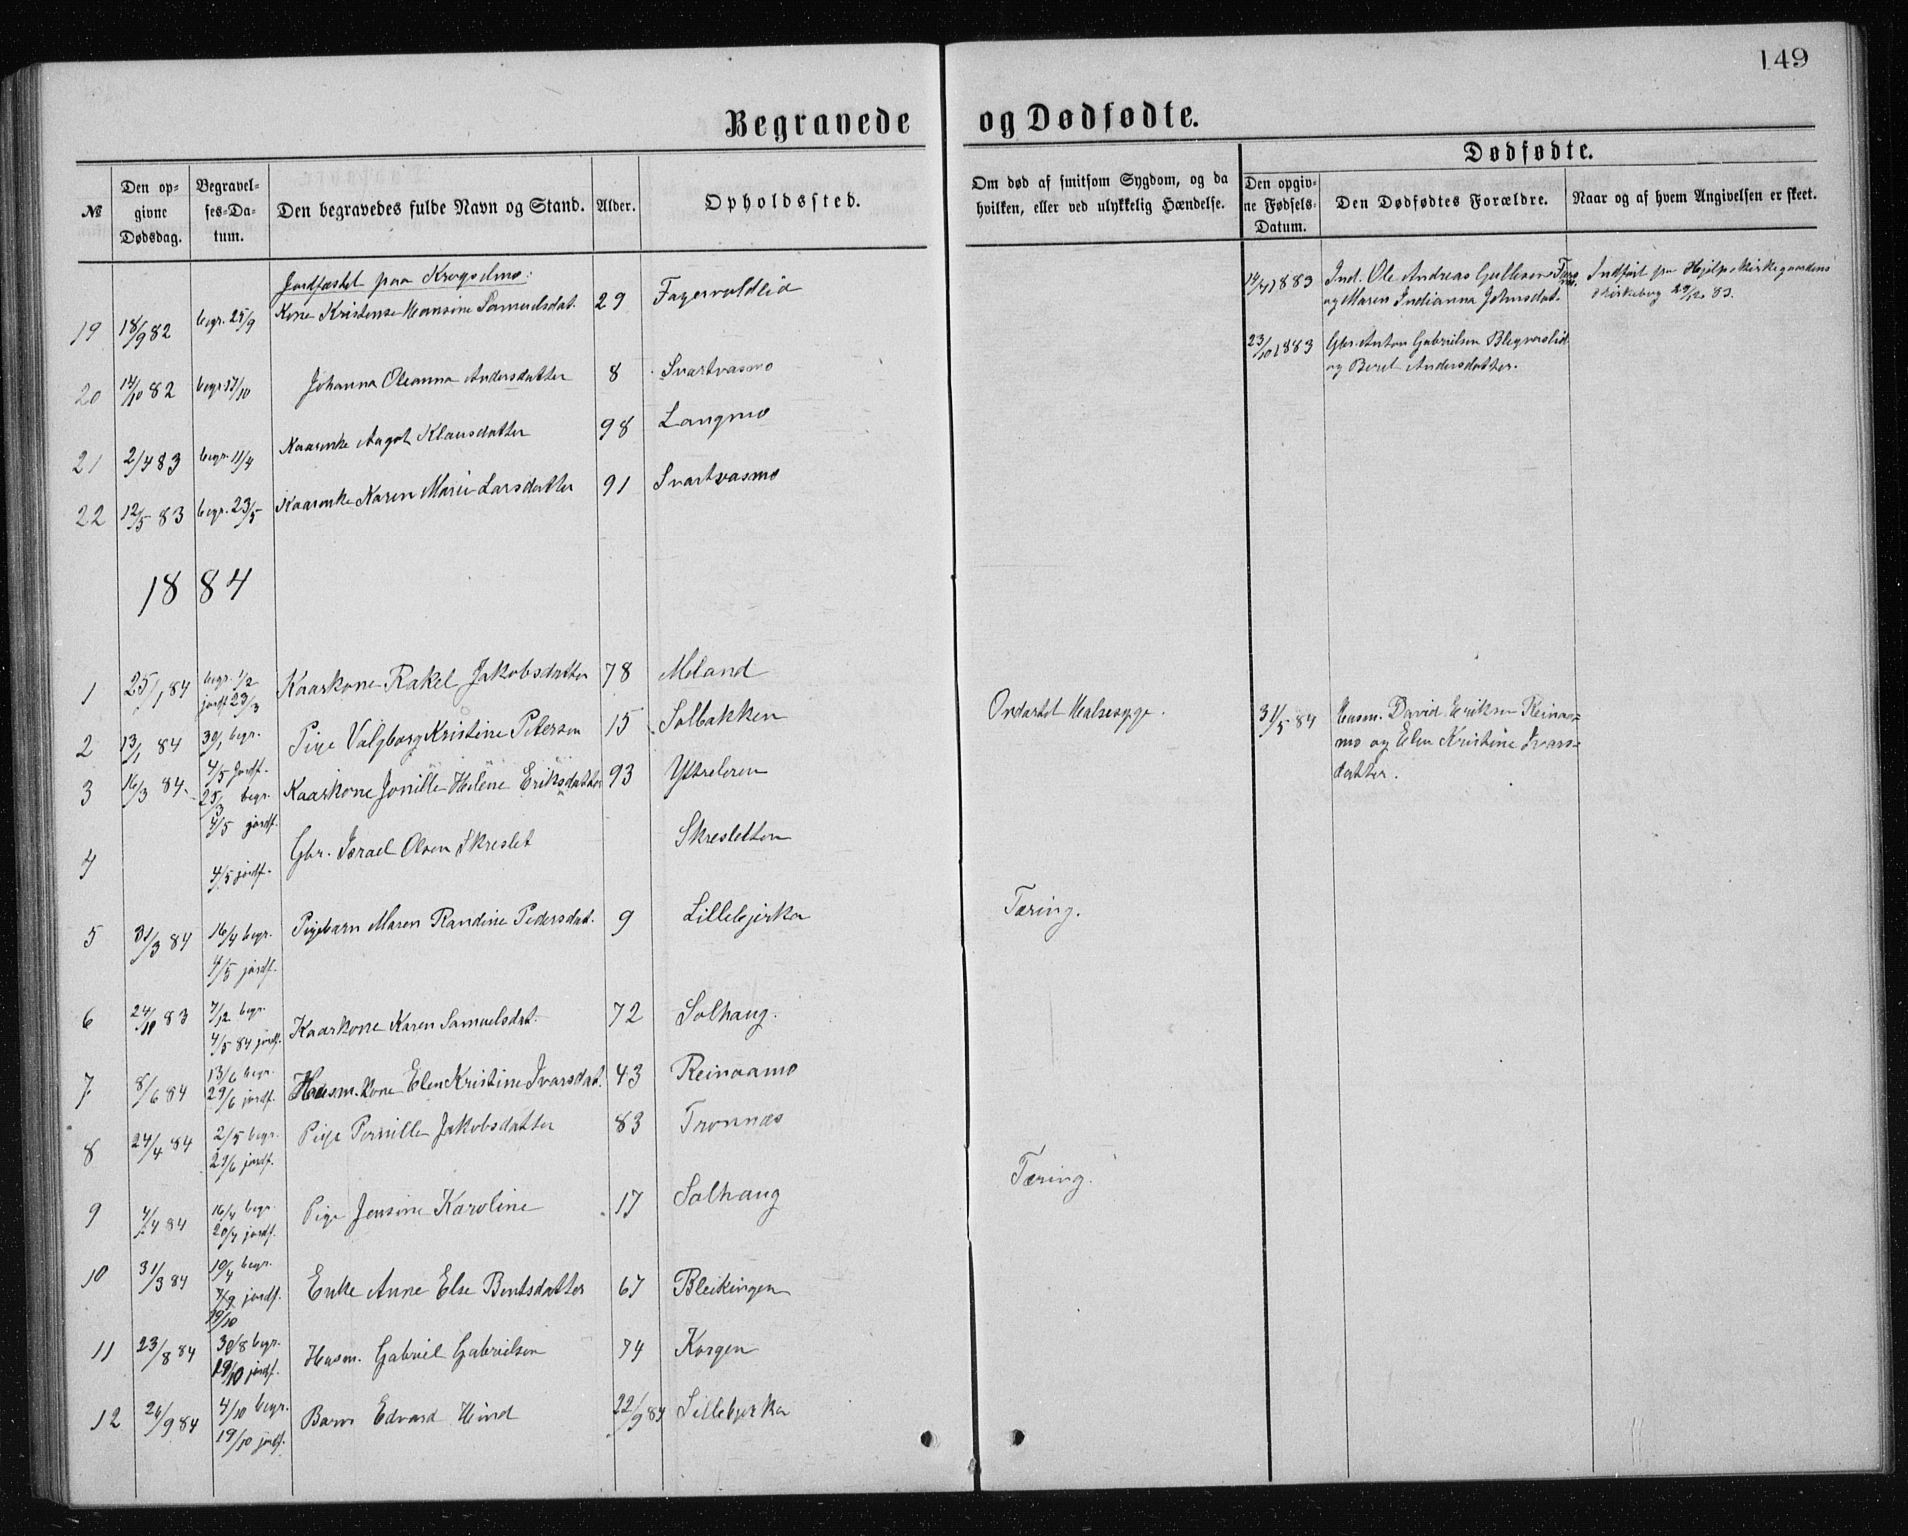 149
Begravede og Dødfødte.
Dødfødte.
№ Den opgivne Dødsdag. Begravelses-Datum. Den begravedes fulde Navn og Stand. Alder. Opholdssted. Om død af smitsom Sygdom, og da hvilken, eller ved ulykkelig Hændelse. Den opgivne Fødsels-Datum. Den Dødfødtes Forældre. Naar og af hvem Angivelsen er skeet.
Jordfæstet paa Krogselmo:
19 18/9 82 begr. 25/9 Kone Kristense Hansine Samuelsdat. 29 Fagervoldlid
14/4 1883 Ind. Ole Andreas Gullesen
og Maren Indianna Johnsdat.
Indført fra Hjelpekirkegaardens
Kirkebog 29/12 83.
20 14/10 82 begr. Johanna Oleanna Andersdatter 8 Svartvasmo
23/10 1883 Gbr. Anton Gabrielsen
og Beret Andersdatter.
21 2/4 83 begr. 11/4 Kaarenke Aagot Klausdatter 98 Langmo
22 12/5 83 begr. 23/5 Kaarenke Karen Marie Larsdatter 91 Svartvasmo
1884
1 25/1 84 begr. 1/2 jordf. 23/3 Kaarkone Rakel Jakobsdatter 78 Meland
2 13/1 84 30/1 begr. 4/5 jordf. Pige Valgborg Kristine Petersen 15 Solbakken Ondartet Halssyge.
31/5 84 Husm. David Eriksen Reinaa-
mo og Elen Kristine Ivars-
datter.
3 16/3 84. 25/3 begr. 4/5 jordf. Kaarkone Jonille Helene Eriksdatter 93 Yttreleren
4 4/5 jordf. Gbr. Israel Olsen Skreslet Skresletten
5 31/3 84 16/4 begr. 4/5 jordf. Pigebarn Maren Randine Pedersdat. 9 Lillebjerka Tæring.
6 24/11 83 7/12 begr. 4/5 84 jordf. Kaarkone Karen Samuelsdat. 72 Solhaug.
7 8/6 84 13/6 begr. 29/6 jordf. Husm.kone Elen Kristine Ivarsdat. 43 Reinaamo
8 24/4 84 2/5 begr. 29/6 jordf. Pige Pernille Jakobsdatter 83 Tronnæs
9 4/4 84 16/4 begr. 20/7 jordf. Pige Jensine Karoline 17 Solhaug Tæring.
10 31/3 84 10/4 begr. 7/9 jordf. 19/10 Enke Anne Else Bentsdatter 67 Bleikingen
11 23/8 84 30/8 begr. 19/10 jordf. Husm. Gabriel Gabrielsen 74 Korgen
12 26/9 84 4/10 begr. 19/10 jordf. Barn Edvard Hind 22/9 84 Lillebjerka